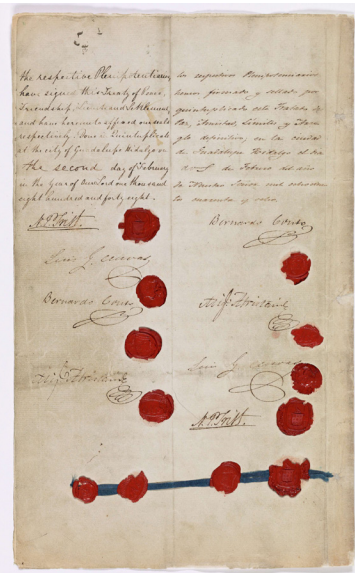 the respective Plenipotentiaries
have signed this Treaty of Peace,
Friendship, Limits and Settlement,
and have hereunto affixed our seals
respectively. Done in Quintuplicate
at the city of Guadalupe Hidalgo on
the second day of February
in the year of Our Lord one thousand
eight hundred and forty eight.
N. P. Trist.
Luis G. Cuevas
Bernardo Couto
Migl. Atristain
los respectivos Plenipotenciarios
hemos firmado y sellado por
quintuplicado este Tratado de
Paz, Amistad, Límites y Arre-
glo definitivo, en la ciudad
de Guadalupe Hidalgo el dia
dos de Febrero del año
de Nuestro Señor mil ochocien-
tos cuarenta y ocho.
Bernardo Couto
Migl. Atristain
Luis G. Cuevas
N. P. Trist.